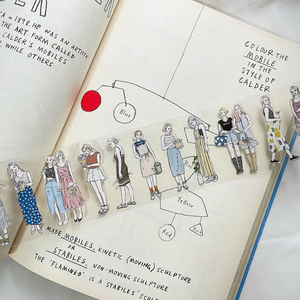 1898. HE WAS AN ARTIST
THE ART FORM CALLED
CALDER'S MOBILES
WHILE OTHERS
COLOUR THE
MOBILE
IN THE
STYLE OF
CALDER
Blue
Yellow
Red
MADE MOBILES, KINETIC (MOVING) SCULPTURE
OR
STABILES, NON-MOVING SCULPTURE
THE 'FLAMINGO' IS A STABILES